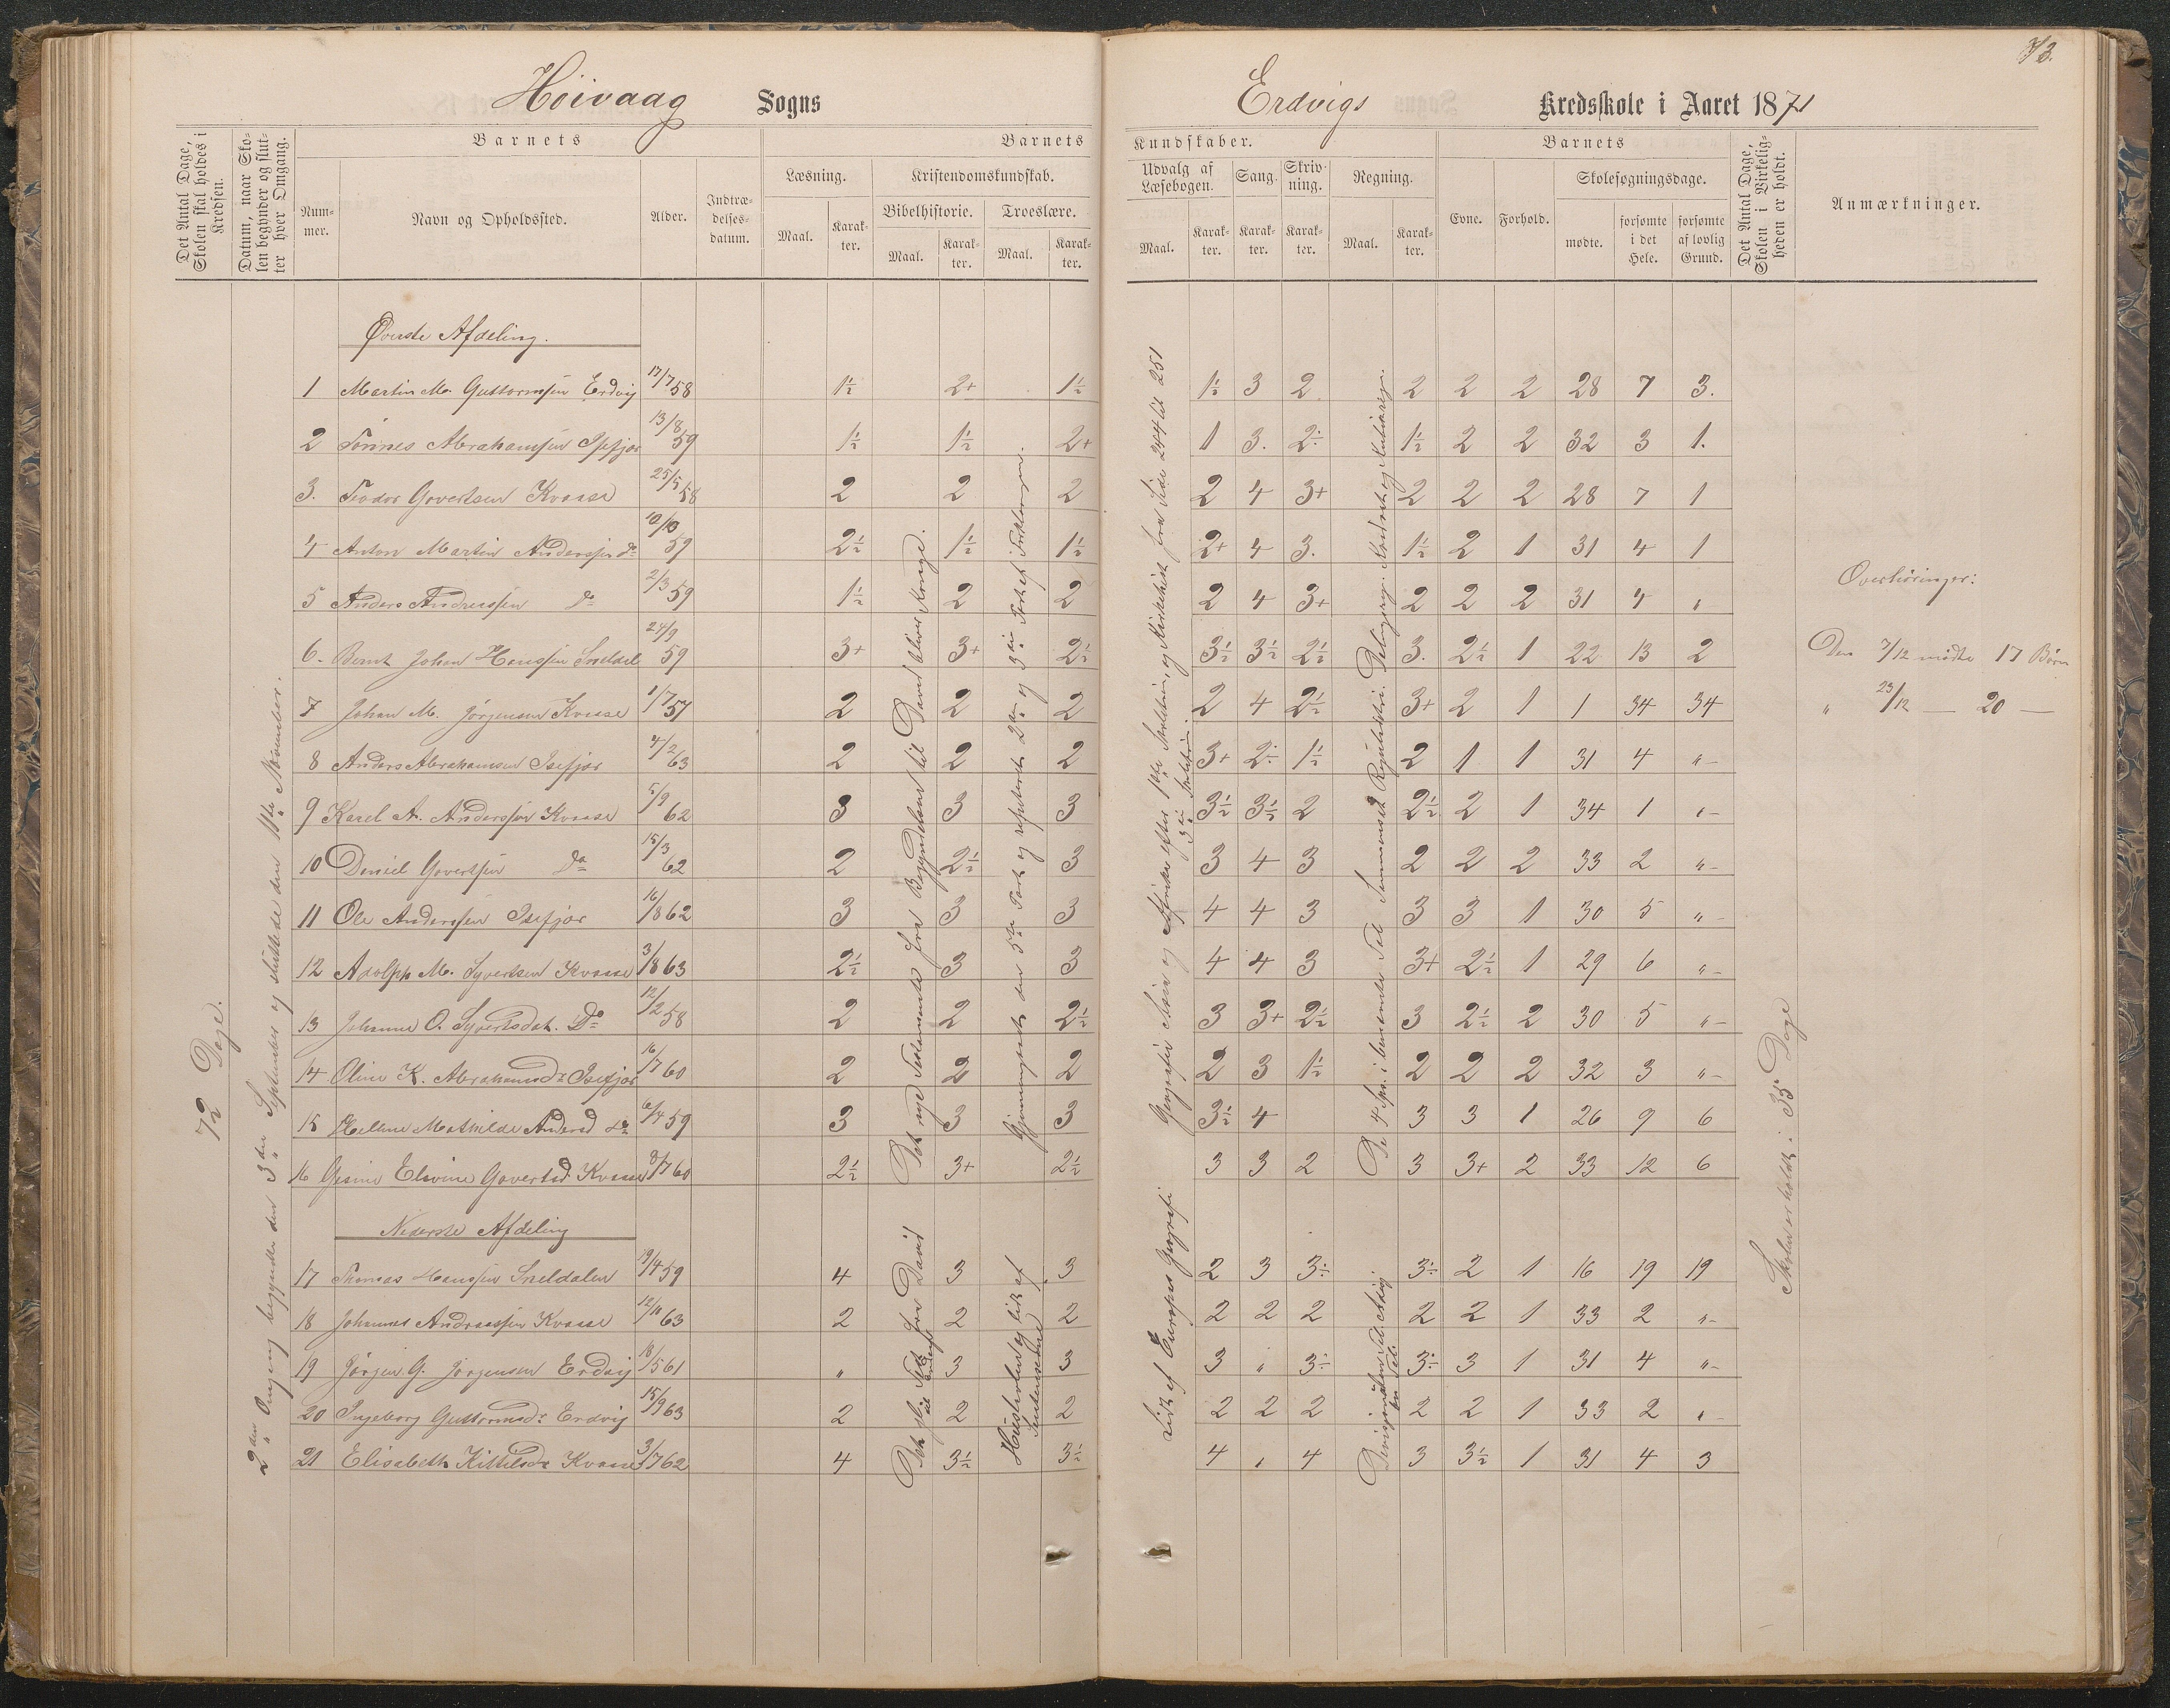 73.
Höivaag Sogns
Erdvigs Kredsskole i Aaret 1871
Det Antal Dage, Skolen skal holdes i Kredsen.
Datum, naar Skolen begynder og slutter hver Omgang.
Barnets
Nummer.
Navn og Opholdssted.
Alder.
Indtrædelsesdatum.
Barnets Kundskaber.
Læsning.
Maal.
Karakter.
Kristendomskundskab.
Bibelhistorie.
Maal.
Karakter.
Troeslære.
Maal.
Karakter.
Udvalg af Læsebogen.
Maal.
Karakter.
Sang.
Karakter.
Skrivning.
Karakter.
Regning.
Maal.
Karakter.
Barnets
Evne.
Forhold.
Skolesøgningsdage.
mødte.
forsømte i det Hele.
forsømte af lovlig Grund.
Det Antal Dage, Skolen i Virkeligheden er holdt.
Anmærkninger.
72 Dage.
2den Omgang begyndte den 3die September og sluttede den 11te November.
Øverste Afdeling.
1 Martin M. Guttormsen Erdvig 17/7 58 1½ 2+ 1½ 1½ 3 2 2 2 2 28 7 3.
2 Tönnes Abrahamsen Isefjær 13/8 59 1½ 1½ 2+ 1 3. 2÷ 1½ 2 2 32 3 1.
3. Teodor Govertsen Kvaase 25/5 58 2 2 2 2 4 3+ 2 2 2 28 7 1
4 Anton Martin Anderssen do 10/10 59 2½ 1½ 1½ 2+ 4 3. 1½ 2 1 31 4 1
5 Anders Andreassen Do 2/3 59 1½ 2 2 2 4 3+ 2 2 2 31 4 "
6. Bernt Johan Hanssen Sneldal 24/9 59 3+ 3+ 2½ 3½ 3½ 2½ 3. 2½ 1 22 13 2
7 Johan M. Jørgensen Kvaase 1/7 57 2 2 2 2 4 2½ 3+ 2 1 1 34 34
8 Anders Abrahamsen Isefjær 4/2 63 2 2 2 3+ 2÷ 1½ 2 1 1 31 4 "
9 Karel A. Anderssen Kvaase 5/9 62 3 3 3 3½ 3½ 2 2½ 2 1 34 1 "
10 Daniel Govertsen Do 15/3 62 2 2½ 3 3 4 3 2 2 2 33 2 "
11 Ole Anderssen Isefjær 16/8 62 3 3 3 4 4 3 3 3 1 30 5 "
12 Adolph M. Syvertsen Kvaase 3/8 63 2½ 3 3 4 4 3 3+ 2½ 1 29 6 "
13 Johanne O. Syvertsdat. Do 12/2 58 2 2 2½ 3 3+ 2½ 3 2½ 2 30 5 "
14 Oline K. Abrahamsdr Isefjær 16/7 60 2 2 2 2 3 1½ 2 2 2 32 3 "
15 Helene Mathilde Andersd do 6/4 59 3 3 3 3½ 4 3 3 1 26 9 6
16 Gesine Elevine Govertsd. Kvaase 9/7 60 2½ 3+ 2½ 3 3 2 3 3+ 2 33 12 6
Det nye Testamente fra Begyndelsen til David bliver Konge.
Gjennemgaaet den 5te Part og repeteret 2den og 3die Part af Forklaringen.
Geografi Asia og Afrika efter 1ste Skoletrin, og Kirkehist. fra Side 244 til 251
De 4 Spr. i benævnte Tal Sammensat Reguladetri.
Nederste Afdeling
17 Thomas Hanssen Sneldalen 19/4 59 4 3 3 2 3 3÷ 3÷ 2 1 16 19 19
18 Johannes Andreassen Kvaase 12/11 63 2 2 2 2 2 2 2 2 1 33 2 "
19 Jørgen G. Jørgensen Erdvig 18/5 61 " 3 3 3 " 3÷ 3÷ 3 1 31 4 "
20 Ingeborg Guttormsdr Erdvig 15/9 63 2 2 2 2 2 2 2 2 1 33 2 "
21 Elisabeth Kittilsdr Kvaase 3/7 62 4 3½ 3½ 4 " 4 3 3½ 1 31 4 3
Lidt af Europas Geografi
Skolen er holdt i 35 Dage
Overhøringer:
Den 7/12 mødte 17 Børn
" 23/12 — 20 —